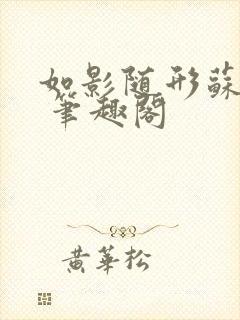 如影随形蘇
笔趣閣
黄華松